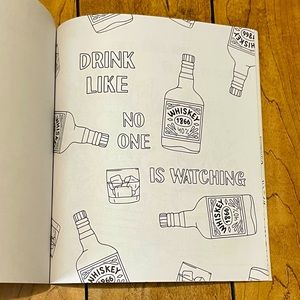 WHISKEY
1866
DRINK
LIKE
WHISKEY
1866
40%
NO
ONE
IS WATCHING
WHISKEY
1866
40%
WHISKEY
1866